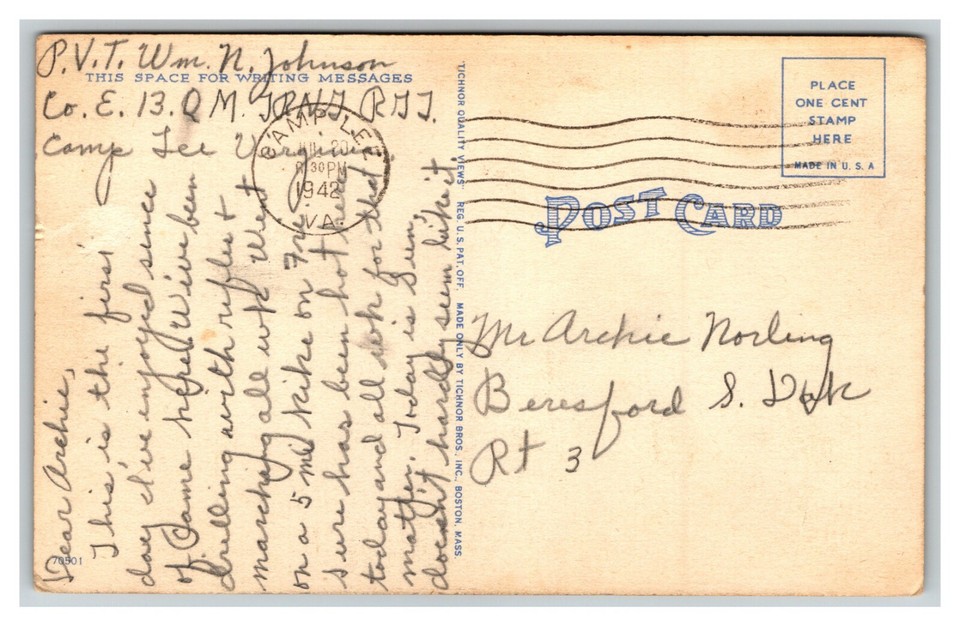 P.V.T. Wm. N. Johnson
THIS SPACE FOR WRITING MESSAGES
Co. E. 13. Q M. TRNG. RGT.
Camp Lee Virginia.
Dear Archie,
This is the first
day I've enjoyed sence
of came here. We've been
drilling with rifles +
marching all wk. Went
on a 5 mi hike on Fri.
sure has been hot here
today and all wk for that
matter. Today is Sun.
doesn't hardly seem like it
70501
CAMP LEE
JUN 20
8 30 PM
1942
VA.
"TICHNOR QUALITY VIEWS" REG. U. S. PAT. OFF. MADE ONLY BY TICHNOR BROS., INC., BOSTON, MASS.
PLACE
ONE CENT
STAMP
HERE
MADE IN U. S. A
POST CARD
Mr Archie Norling
Beresford S. Dak
Rt 3